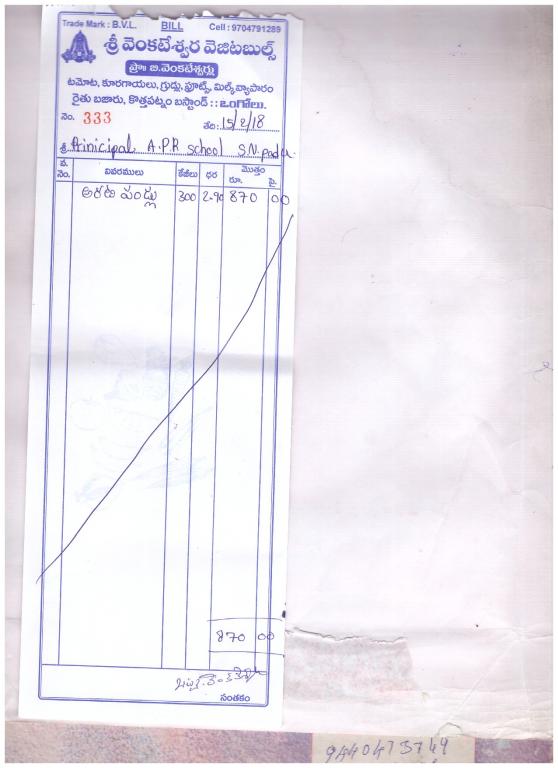 Trade Mark : B.V.L. BILL Cell : 9704791289
శ్రీ వెంకటేశ్వర వెజిటబుల్స్
ప్రొః బి.వెంకటేశ్వర్లు
టమోట, కూరగాయలు, గ్రుడ్లు, ఫ్రూట్స్, మిల్క్ వ్యాపారం
రైతు బజారు, కొత్తపట్నం బస్టాండ్ : : ఒంగోలు.
నెం. 333 తేది: 15/2/18
శ్రీ Prinicipal A.P.R school S.N.padu
వ.నెం. వివరములు కేజీలు ధర మొత్తం రూ. పై.
అరటి పండ్లు 300 2-90 870 00
870 00
సంతకం
9440473749